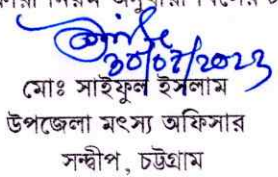 ৩০/০৫/২০২৩
মোঃ সাইফুল ইসলাম
উপজেলা মৎস্য অফিসার
সন্দ্বীপ, চট্টগ্রাম